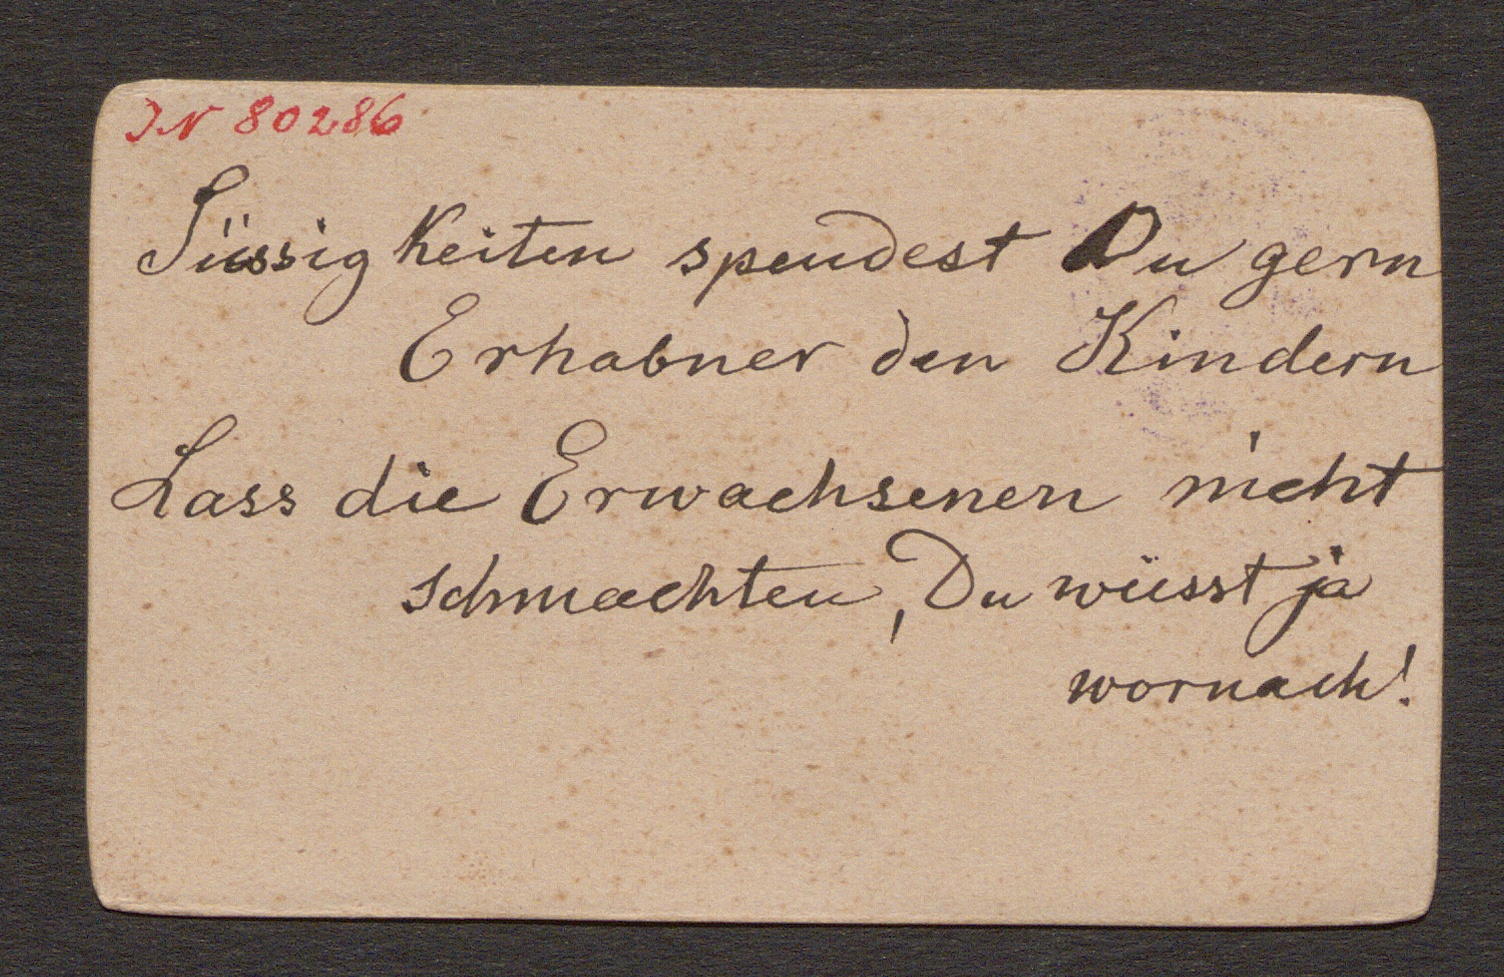 JN 80286
Süssigkeiten spendest Du gern
Erhabner den Kindern
Lass die Erwachsenen nicht
schmachten, Du wüsst ja
wornach!